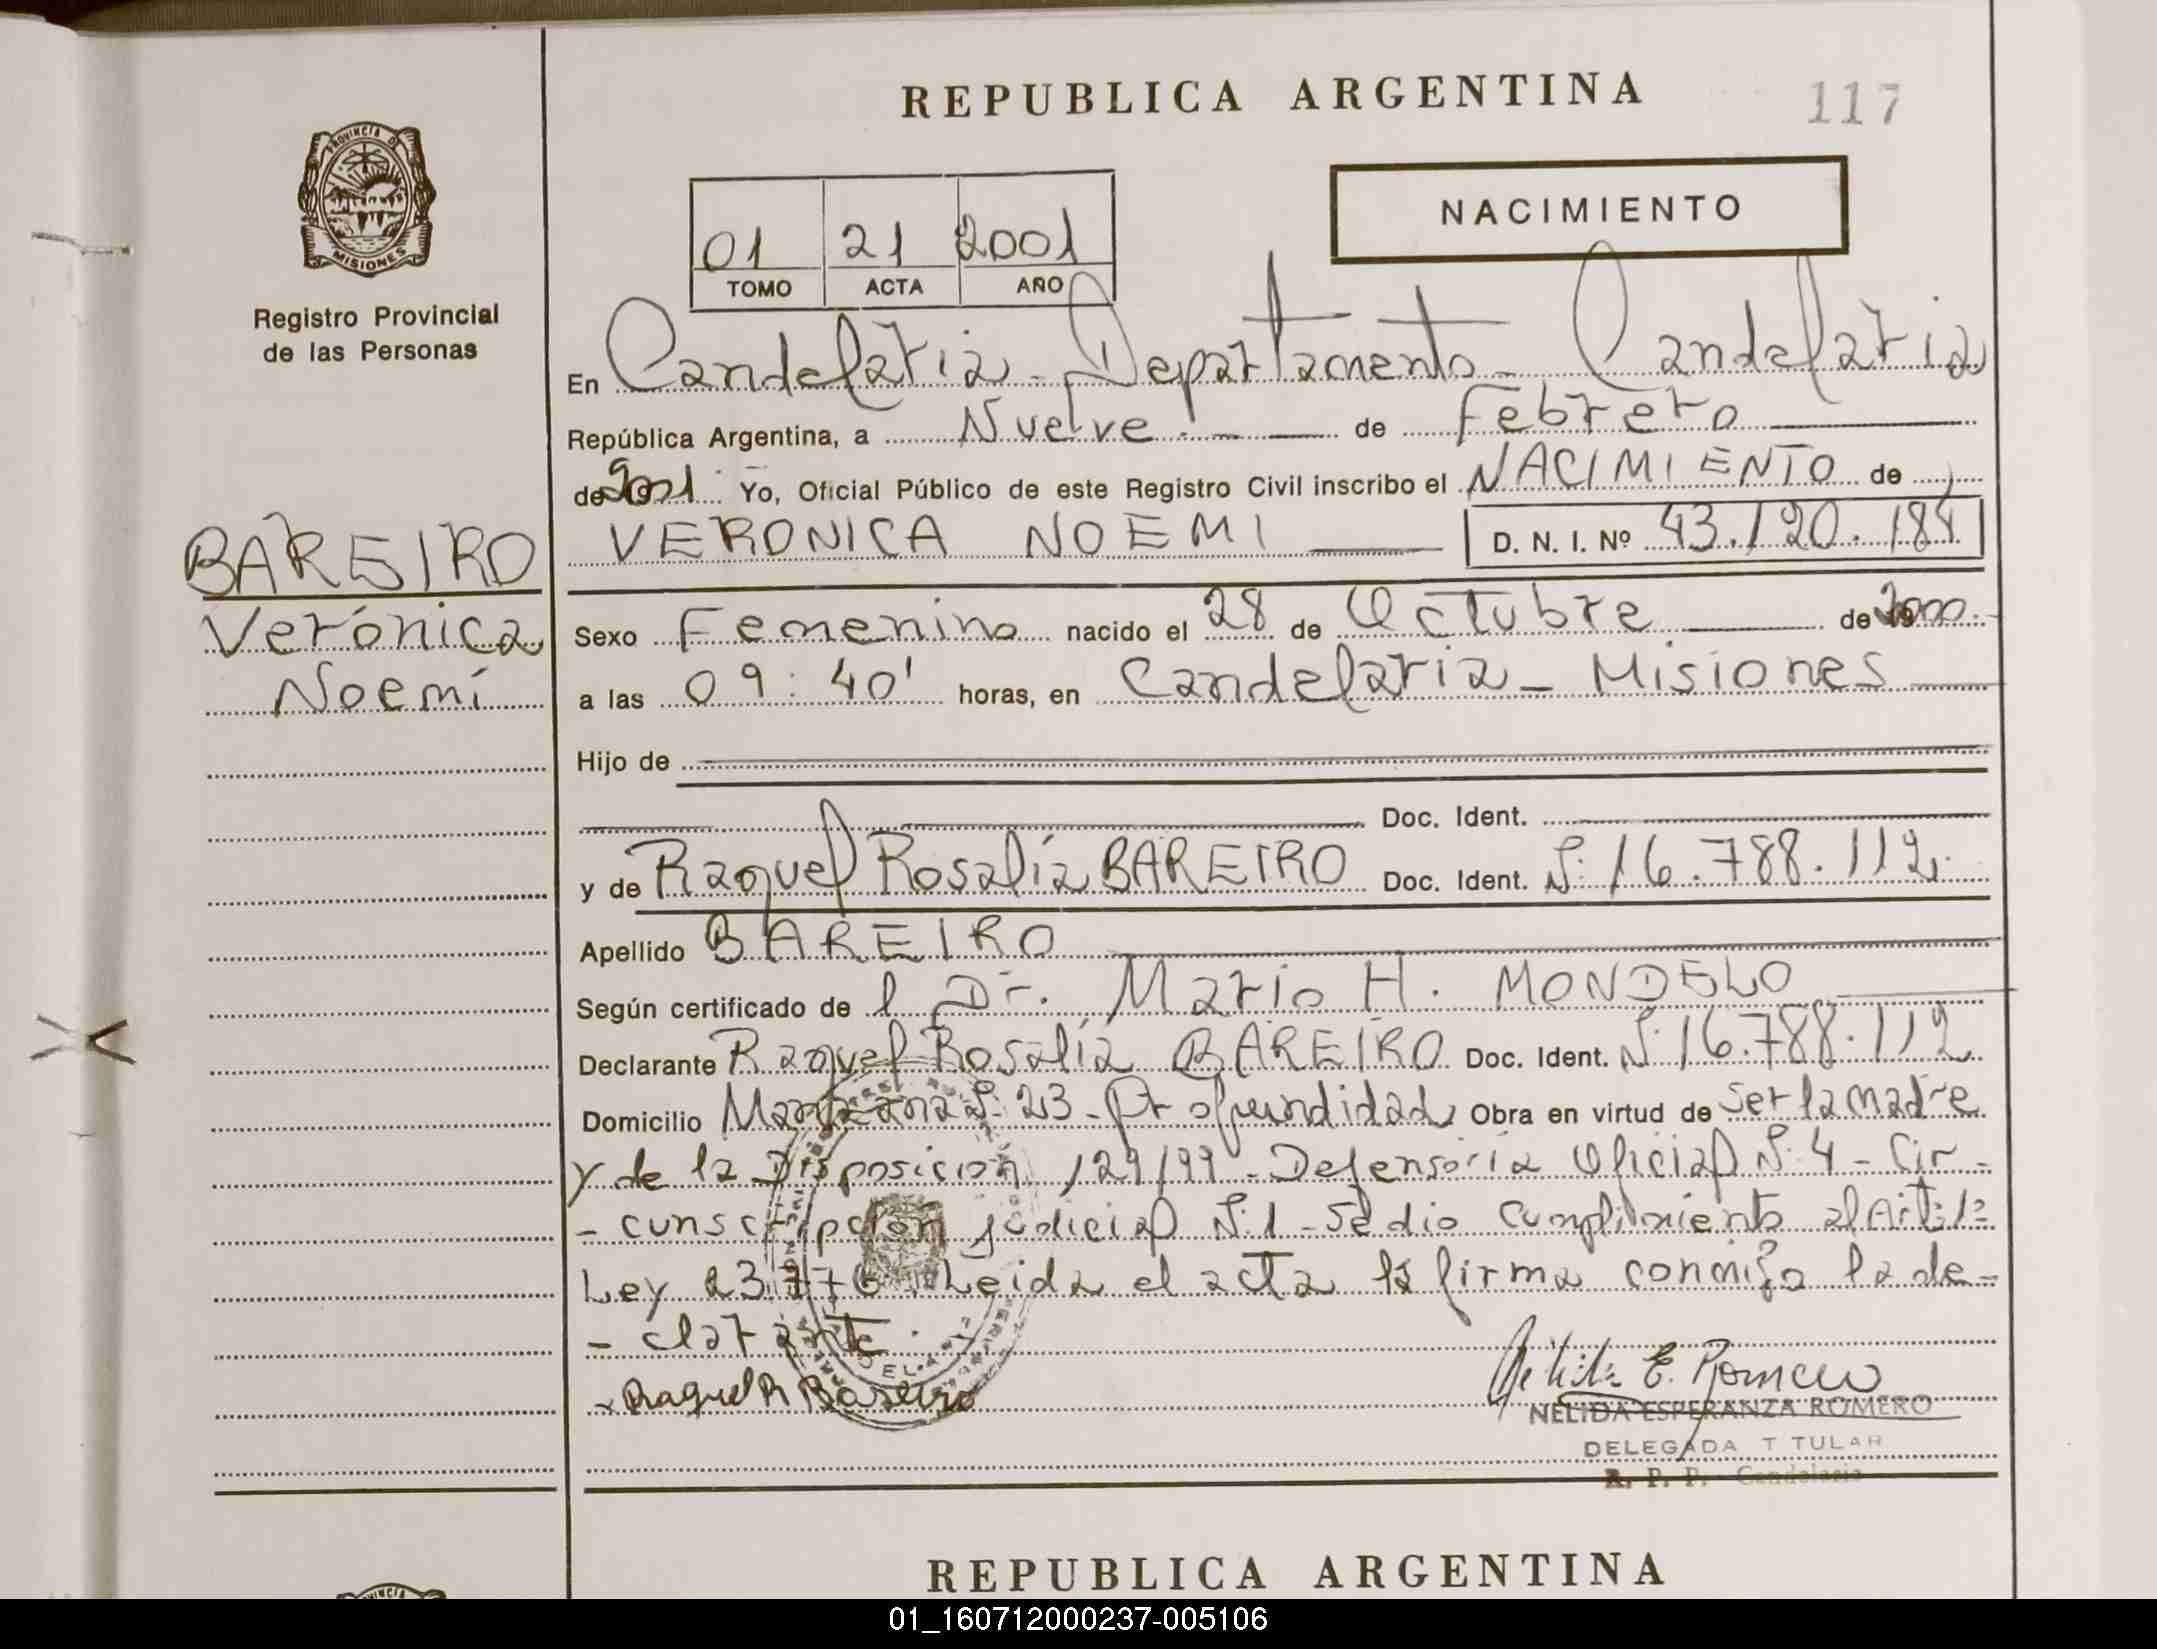 REPUBLICA ARGENTINA
117
PROVINCIA DE
MISIONES
Registro Provincial
de las Personas
01 21 2001
TOMO ACTA AÑO
NACIMIENTO
En Candelaria - Departamento - Candelaria
República Argentina, a Nueve.- de Febrero
de 2001 Yo, Oficial Público de este Registro Civil inscribo el NACIMIENTO de
VERONICA NOEMI D. N. I. Nº 43.120.184
BAREIRO
Verónica
Noemí
Sexo Femenino nacido el 28 de Octubre de 2000.-
a las 09:40' horas, en Candelaria - Misiones
Hijo de
Doc. Ident.
y de Raquel Rosalía BAREIRO Doc. Ident. Nº 16.788.112.
Apellido BAREIRO
Según certificado de l Dr. Mario H. MONDELO
Declarante Raquel Rosalía BAREIRO Doc. Ident. Nº 16.788.112
Domicilio Manzana Nº 23 - Profundidad Obra en virtud de ser la madre
y de la Disposición 129/99 - Defensoría Oficial Nº 4 - Cir-
- cunscripción judicial Nº 1 - Se dio cumplimiento al Art. 1º
Ley 23.776. Leida el acta la firma conmigo la de-
- clarante.
x Raquel R Bareiro
Nélida E. Romero
NELIDA ESPERANZA ROMERO
DELEGADA T TULAR
R. P. P. Candelaria
REPUBLICA ARGENTINA
01_160712000237-005106